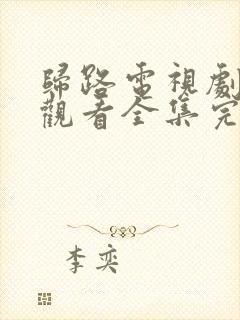 歸路電視劇
觀看全集完
李奕